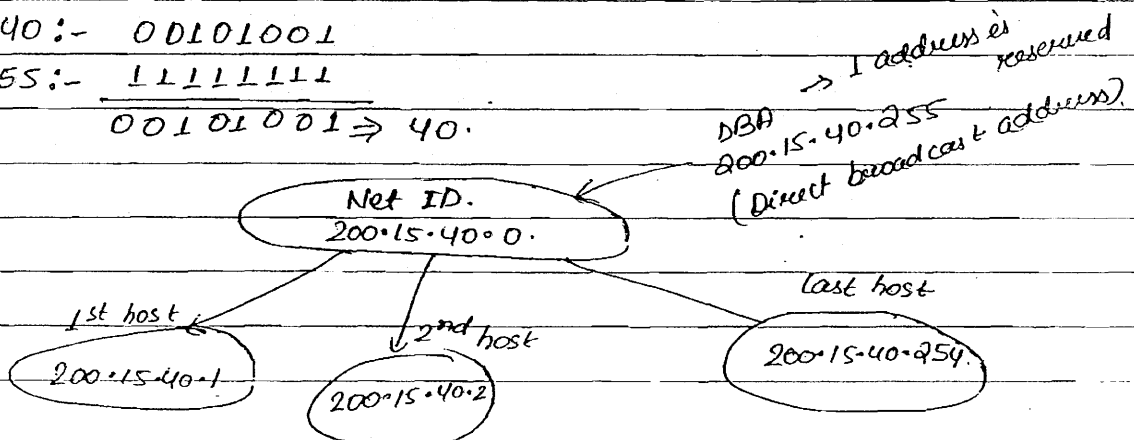 40:- 00101001
55:- 11111111
00101001 ⇒ 40.
DBA → 1 address is reserved
200.15.40.255
(Direct broadcast address).
Net ID.
200.15.40.0.
1st host
2nd host
last host
200.15.40.1
200.15.40.2
200.15.40.254.